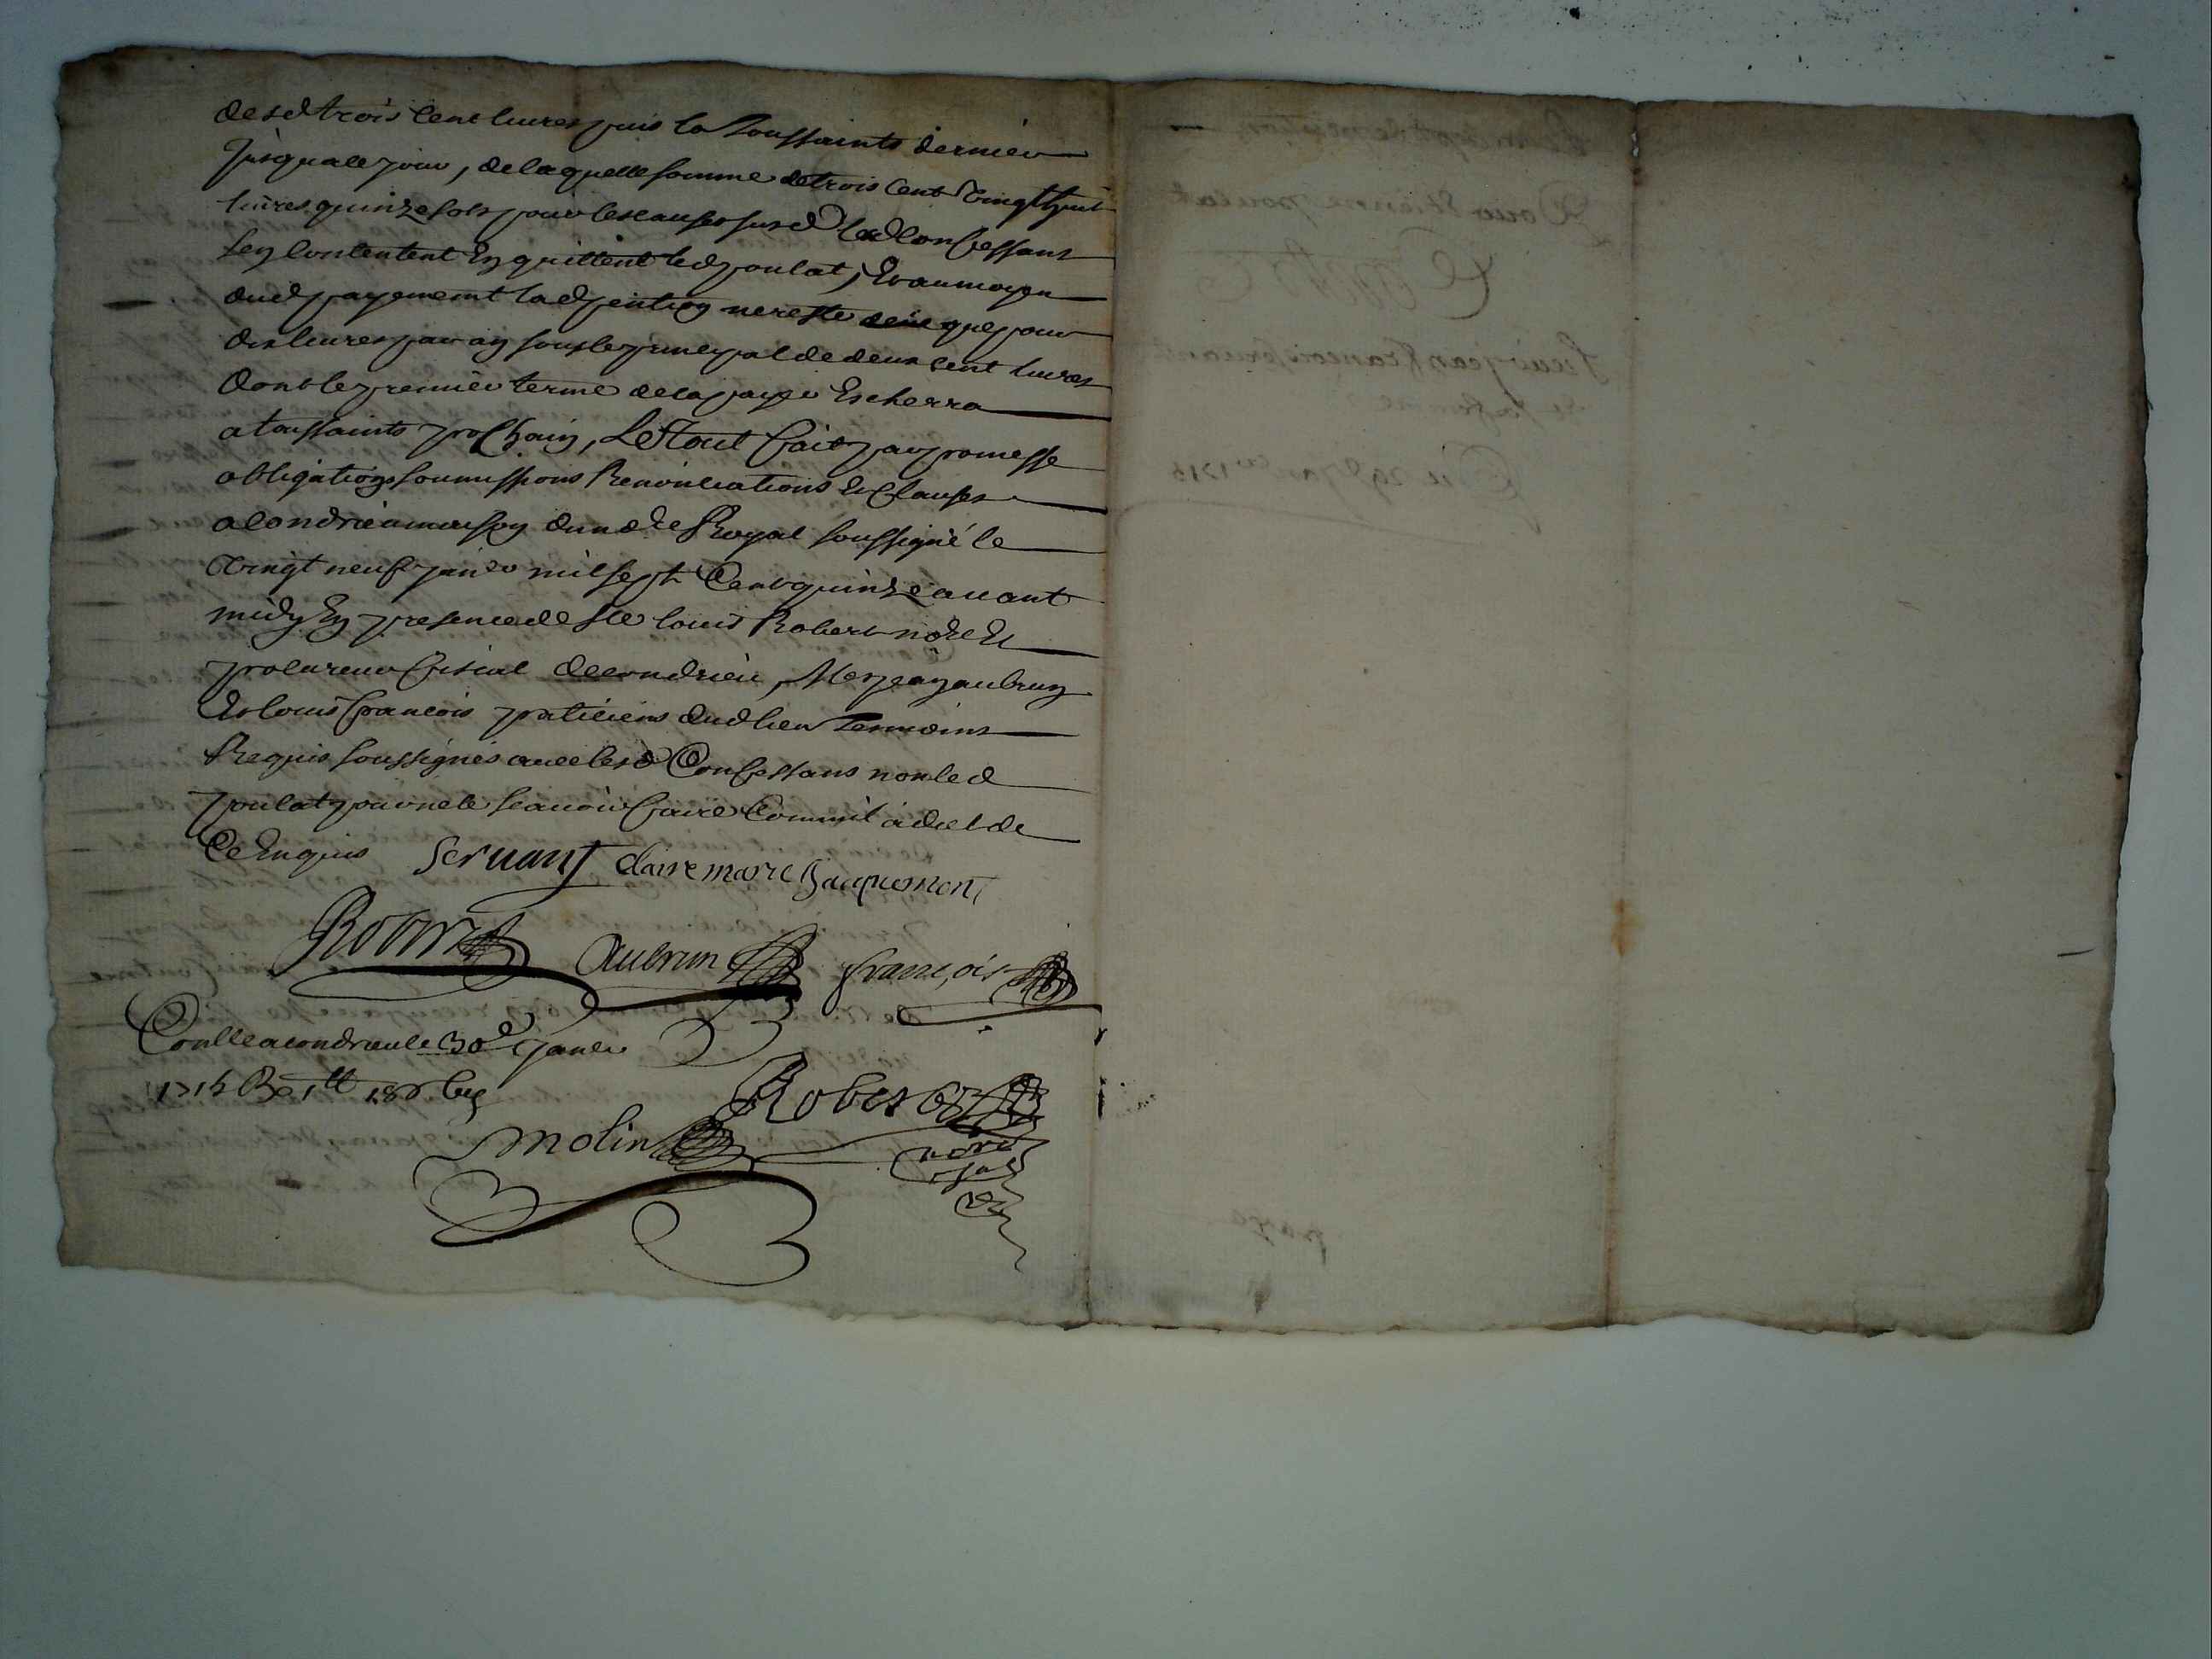 desd trois cent liures puis la Toussaints dernier
Jusqua ce jour, de laquelle somme de trois cent vingt huit
liures quinze sols pour les causes susd les d confessant
sen contentent En quittent led poulat, Et au moyen
dud payement lad pention ne reste deue que pour
dix liures par an sous le principal de deux cent liures
dont le premier terme de la paye Escherra
a toussaints prochain, Le tout fait par promesse
obligations soumissions Renonciations Et clauses
a Condrieu maison du nore Royal soussigné le
vingt neuf janer mil sept Cent quinze auant
midy En presence de Me louis Robert nore Et
procureur fiscal de condrieu, Mes jean aubrun
Et louis francois praticiens dud lieu temoins
Requis soussignés auec lesd Confessans non led
poulat pour ne le scauoir faire Comm'il a dit de
Ce Enquis Servant claire marie Jacquemont
Robert Aubrun françois
Conlle a condrieu le 30e Januier
1715 Re 1tt 18s
molin Robert
nore
Royal
pour Etienne poulat
Contre
sieur jean francois seruant
et sa femme
Du 29e janer 1715